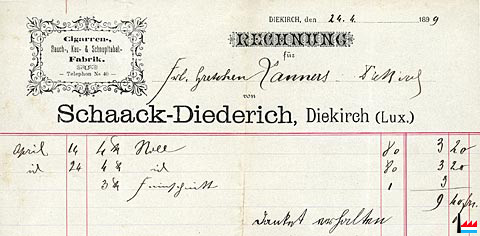 Cigarren-,
Rauch-, Kau- & Schnupftabak-
Fabrik.
Telephon No 40
DIEKIRCH, den 24. 4. 1899
RECHNUNG
für
Frl. Gretchen Wanners Diekirch
von
Schaack-Diederich, Diekirch (Lux.)
April 14 4 ℔ Rolle 80 3 20
id 24 4 ℔ id 80 3 20
3 ℔ Feinschnitt 1 3
9 40 frs.
Dankend erhalten